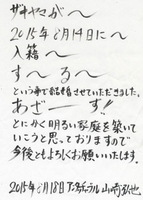 ザキヤマが〜
2015年6月14日に〜
入籍〜
す〜る〜
という事で結婚させていただきました。
あざーーす!!
とにかく明るい家庭を築いて
いこうと思っておりますので
今後ともよろしくお願いいたします。
2015年6月18日 アンタッチャブル 山崎弘也